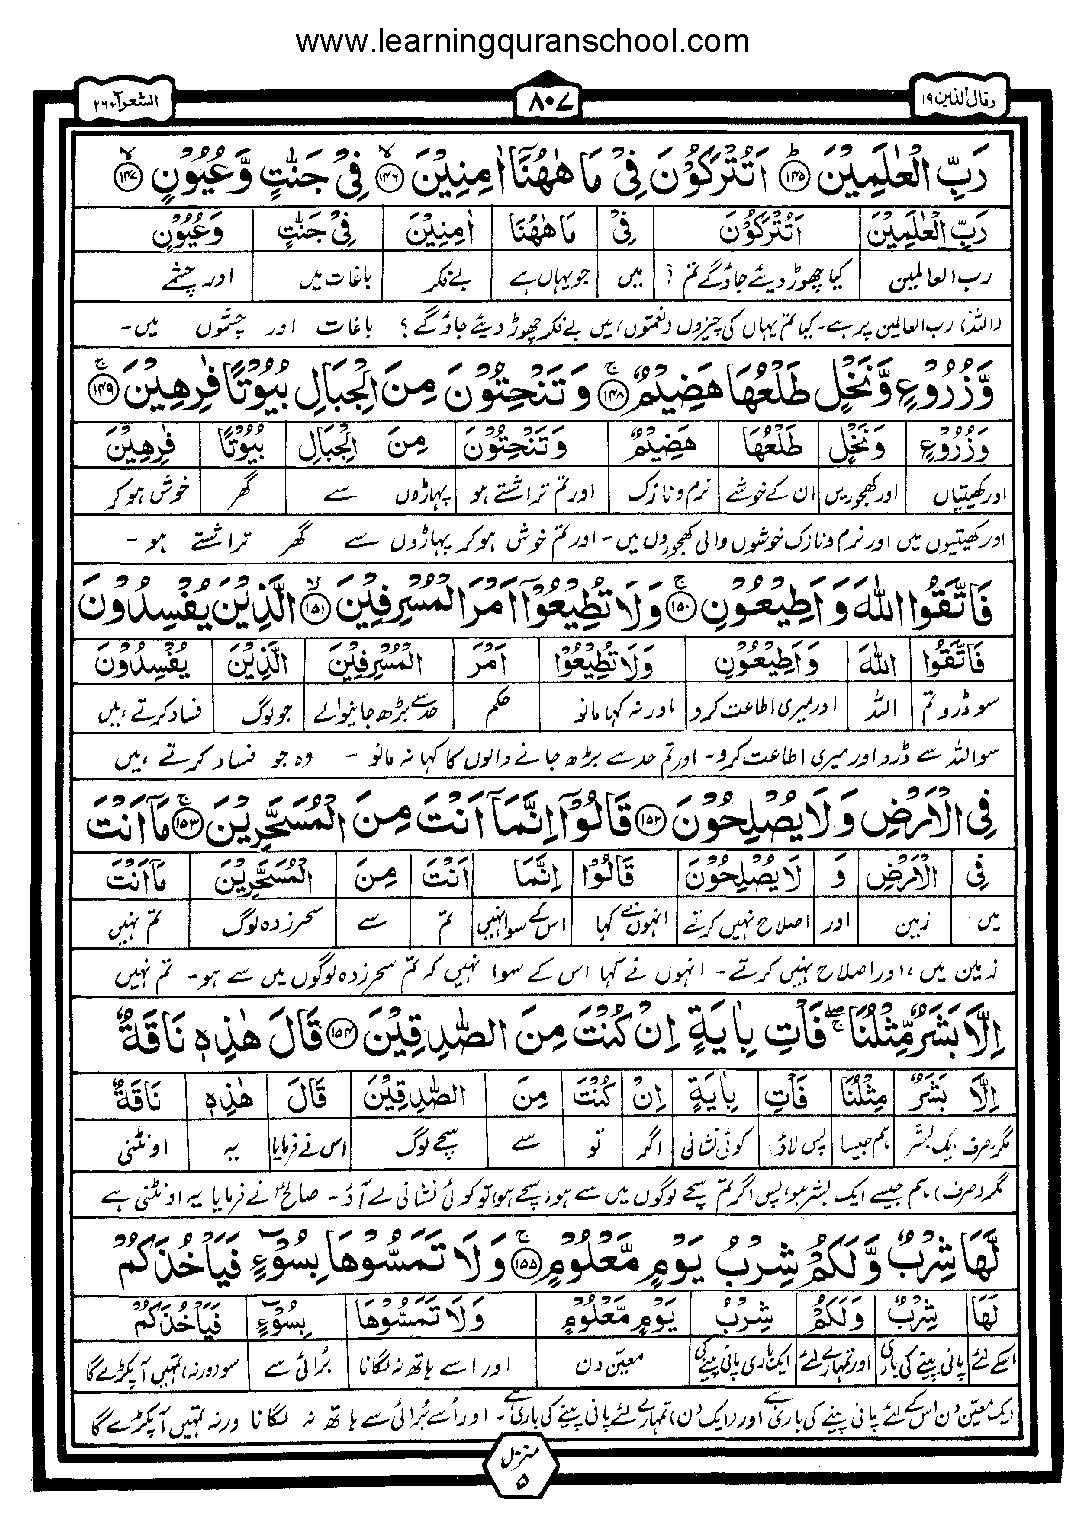 www.learningquranschool.com
وقال الذین ۱۹
۸۰۷
الشعرآء ۲۶
رَبِّ الْعٰلَمِیْنَ ﴿۱۴۵﴾ اَتُتْرَكُوْنَ فِیْ مَا هٰهُنَاۤ اٰمِنِیْنَ ﴿۱۴۶﴾ فِیْ جَنّٰتٍ وَّعُیُوْنٍ ﴿۱۴۷﴾
رَبِّ الْعٰلَمِیْنَ اَتُتْرَكُوْنَ فِیْ مَا هٰهُنَا اٰمِنِیْنَ فِیْ جَنّٰتٍ وَعُیُوْنٍ
رب العالمین کیا چھوڑ دیئے جاؤگے تم؟ میں جو یہاں ہے بے فکر باغات میں اور چشمے
(اللہ) رب العالمین پر ہے۔ کیا تم یہاں کی چیزوں (نعمتوں) میں بے فکر چھوڑ دیئے جاؤ گے؟ باغات اور چشموں میں۔
وَّزُرُوْعٍ وَّنَخْلٍ طَلْعُهَا هَضِیْمٌ ﴿۱۴۸﴾ وَتَنْحِتُوْنَ مِنَ الْجِبَالِ بُیُوْتًا فٰرِهِیْنَ ﴿۱۴۹﴾
وَزُرُوْعٍ وَنَخْلٍ طَلْعُهَا هَضِیْمٌ وَتَنْحِتُوْنَ مِنَ الْجِبَالِ بُیُوْتًا فٰرِهِیْنَ
اور کھیتیاں اور کھجوریں ان کے خوشے نرم و نازک اور تم تراشتے ہو سے پہاڑوں گھر خوش ہو کر
اور کھیتیوں میں اور نرم و نازک خوشوں والی کھجوروں میں۔ اور تم خوش ہو کر پہاڑوں سے گھر تراشتے ہو۔
فَاتَّقُوا اللّٰهَ وَاَطِیْعُوْنِ ﴿۱۵۰﴾ وَلَا تُطِیْعُوْۤا اَمْرَ الْمُسْرِفِیْنَ ﴿۱۵۱﴾ الَّذِیْنَ یُفْسِدُوْنَ
فَاتَّقُوا اللّٰهَ وَاَطِیْعُوْنِ وَلَا تُطِیْعُوْا اَمْرَ الْمُسْرِفِیْنَ الَّذِیْنَ یُفْسِدُوْنَ
سو ڈرو تم اللہ اور میری اطاعت کرو اور نہ کہا مانو حکم حد سے بڑھ جانیوالے جو لوگ فساد کرتے ہیں
سو اللہ سے ڈرو اور میری اطاعت کرو۔ اور تم حد سے بڑھ جانے والوں کا کہا نہ مانو۔ وہ جو فساد کرتے ہیں
فِی الْاَرْضِ وَلَا یُصْلِحُوْنَ ﴿۱۵۲﴾ قَالُوْۤا اِنَّمَاۤ اَنْتَ مِنَ الْمُسَحَّرِیْنَ ﴿۱۵۳﴾ مَاۤ اَنْتَ
فِی الْاَرْضِ وَ لَا یُصْلِحُوْنَ قَالُوْا اِنَّمَا اَنْتَ مِنَ الْمُسَحَّرِیْنَ مَاۤ اَنْتَ
میں زمین اور اصلاح نہیں کرتے انہوں نے کہا اس کے سوا نہیں تم سے سحر زدہ لوگ تم نہیں
زمین میں، اور اصلاح نہیں کرتے۔ انہوں نے کہا اس کے سوا نہیں کہ تم سحر زدہ لوگوں میں سے ہو۔ تم نہیں
اِلَّا بَشَرٌ مِّثْلُنَا فَاْتِ بِاٰیَةٍ اِنْ كُنْتَ مِنَ الصّٰدِقِیْنَ ﴿۱۵۴﴾ قَالَ هٰذِهٖ نَاقَةٌ
اِلَّا بَشَرٌ مِثْلُنَا فَاْتِ بِاٰیَةٍ اِنْ كُنْتَ مِنَ الصّٰدِقِیْنَ قَالَ هٰذِهٖ نَاقَةٌ
مگر صرف ایک بشر ہم جیسا پس لاؤ کوئی نشانی اگر تو سے سچے لوگ اس نے فرمایا یہ اونٹنی
مگر (صرف) ہم جیسے ایک بشر ہو، پس اگر تم سچے لوگوں میں سے ہو، سچے ہو تو کوئی نشانی لے آؤ۔ صالحؑ نے فرمایا یہ اونٹنی ہے
لَّهَا شِرْبٌ وَّلَكُمْ شِرْبُ یَوْمٍ مَّعْلُوْمٍ ﴿۱۵۵﴾ وَلَا تَمَسُّوْهَا بِسُوْٓءٍ فَیَاْخُذَكُمْ
لَهَا شِرْبٌ وَلَكُمْ شِرْبُ یَوْمٍ مَّعْلُوْمٍ وَلَا تَمَسُّوْهَا بِسُوْٓءٍ فَیَاْخُذَكُمْ
اسکے لئے پانی پینے کی باری اور تمہارے لئے ایک باری پانی پینے کی معین دن اور اسے ہاتھ نہ لگانا بُرائی سے سو (ورنہ) تمہیں آپکڑے گا
ایک معین دن اس کے لئے پانی پینے کی باری ہے اور (ایک دن) تمہارے لئے پانی پینے کی باری ہے۔ اور اُسے بُرائی سے ہاتھ نہ لگانا ورنہ تمہیں آپکڑے گا
منزل ۵